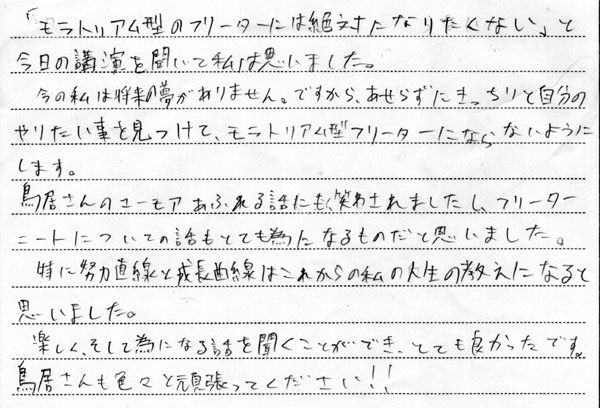 「モラトリアム型のフリーターには絶対になりたくない」と
今日の講演を聞いて私は思いました。
今の私は将来の夢がありません。ですから、あせらずにきっちりと自分の
やりたい事を見つけて、モラトリアム型フリーターにならないように
します。
鳥居さんのユーモアあふれる話にも笑わされましたし、フリーター
ニートについての話もとても為になるものだと思いました。
特に努力直線と成長曲線はこれからの私の人生の教えになると
思いました。
楽しく、そして為になる話を聞くことができ、とても良かったです。
鳥居さんも色々と頑張ってください!!